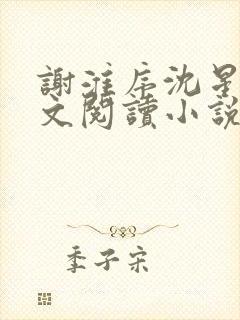 謝淮序沈星
文閱讀小說
季子宋